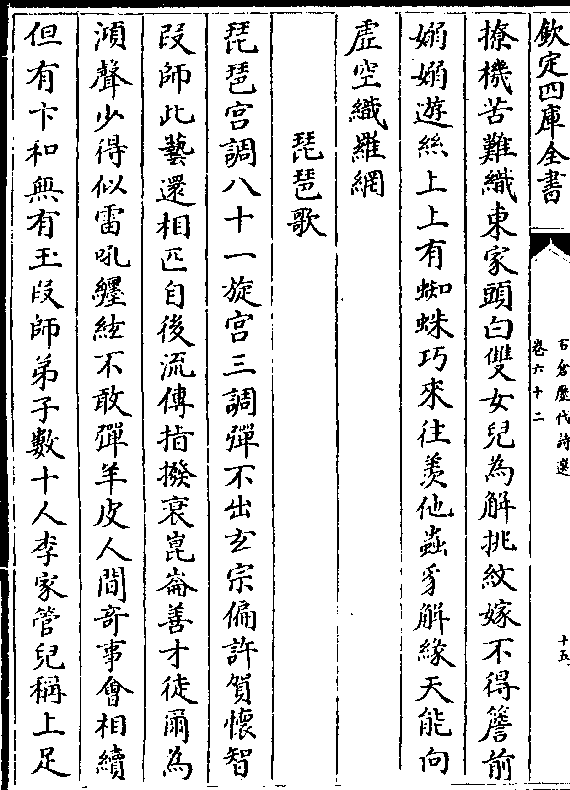 欽定四庫全書
石倉歷代詩選
卷六十二
十五
撩機苦難織東家頭白雙女兒為解挑紋嫁不得簷前
嫋嫋遊絲上上有蜘蛛巧來往羨他蟲豸解緣天能向
虛空織羅網
琵琶歌
琵琶宮調八十一旋宮三調彈不出玄宗偏許賀懷智
段師此藝還相匹自後流傳指撥衰崑崙善才徒爾為
澒聲少得似雷吼纒絃不敢彈羊皮人間奇事會相續
但有卞和無有玉段師弟子數十人李家管兒稱上足